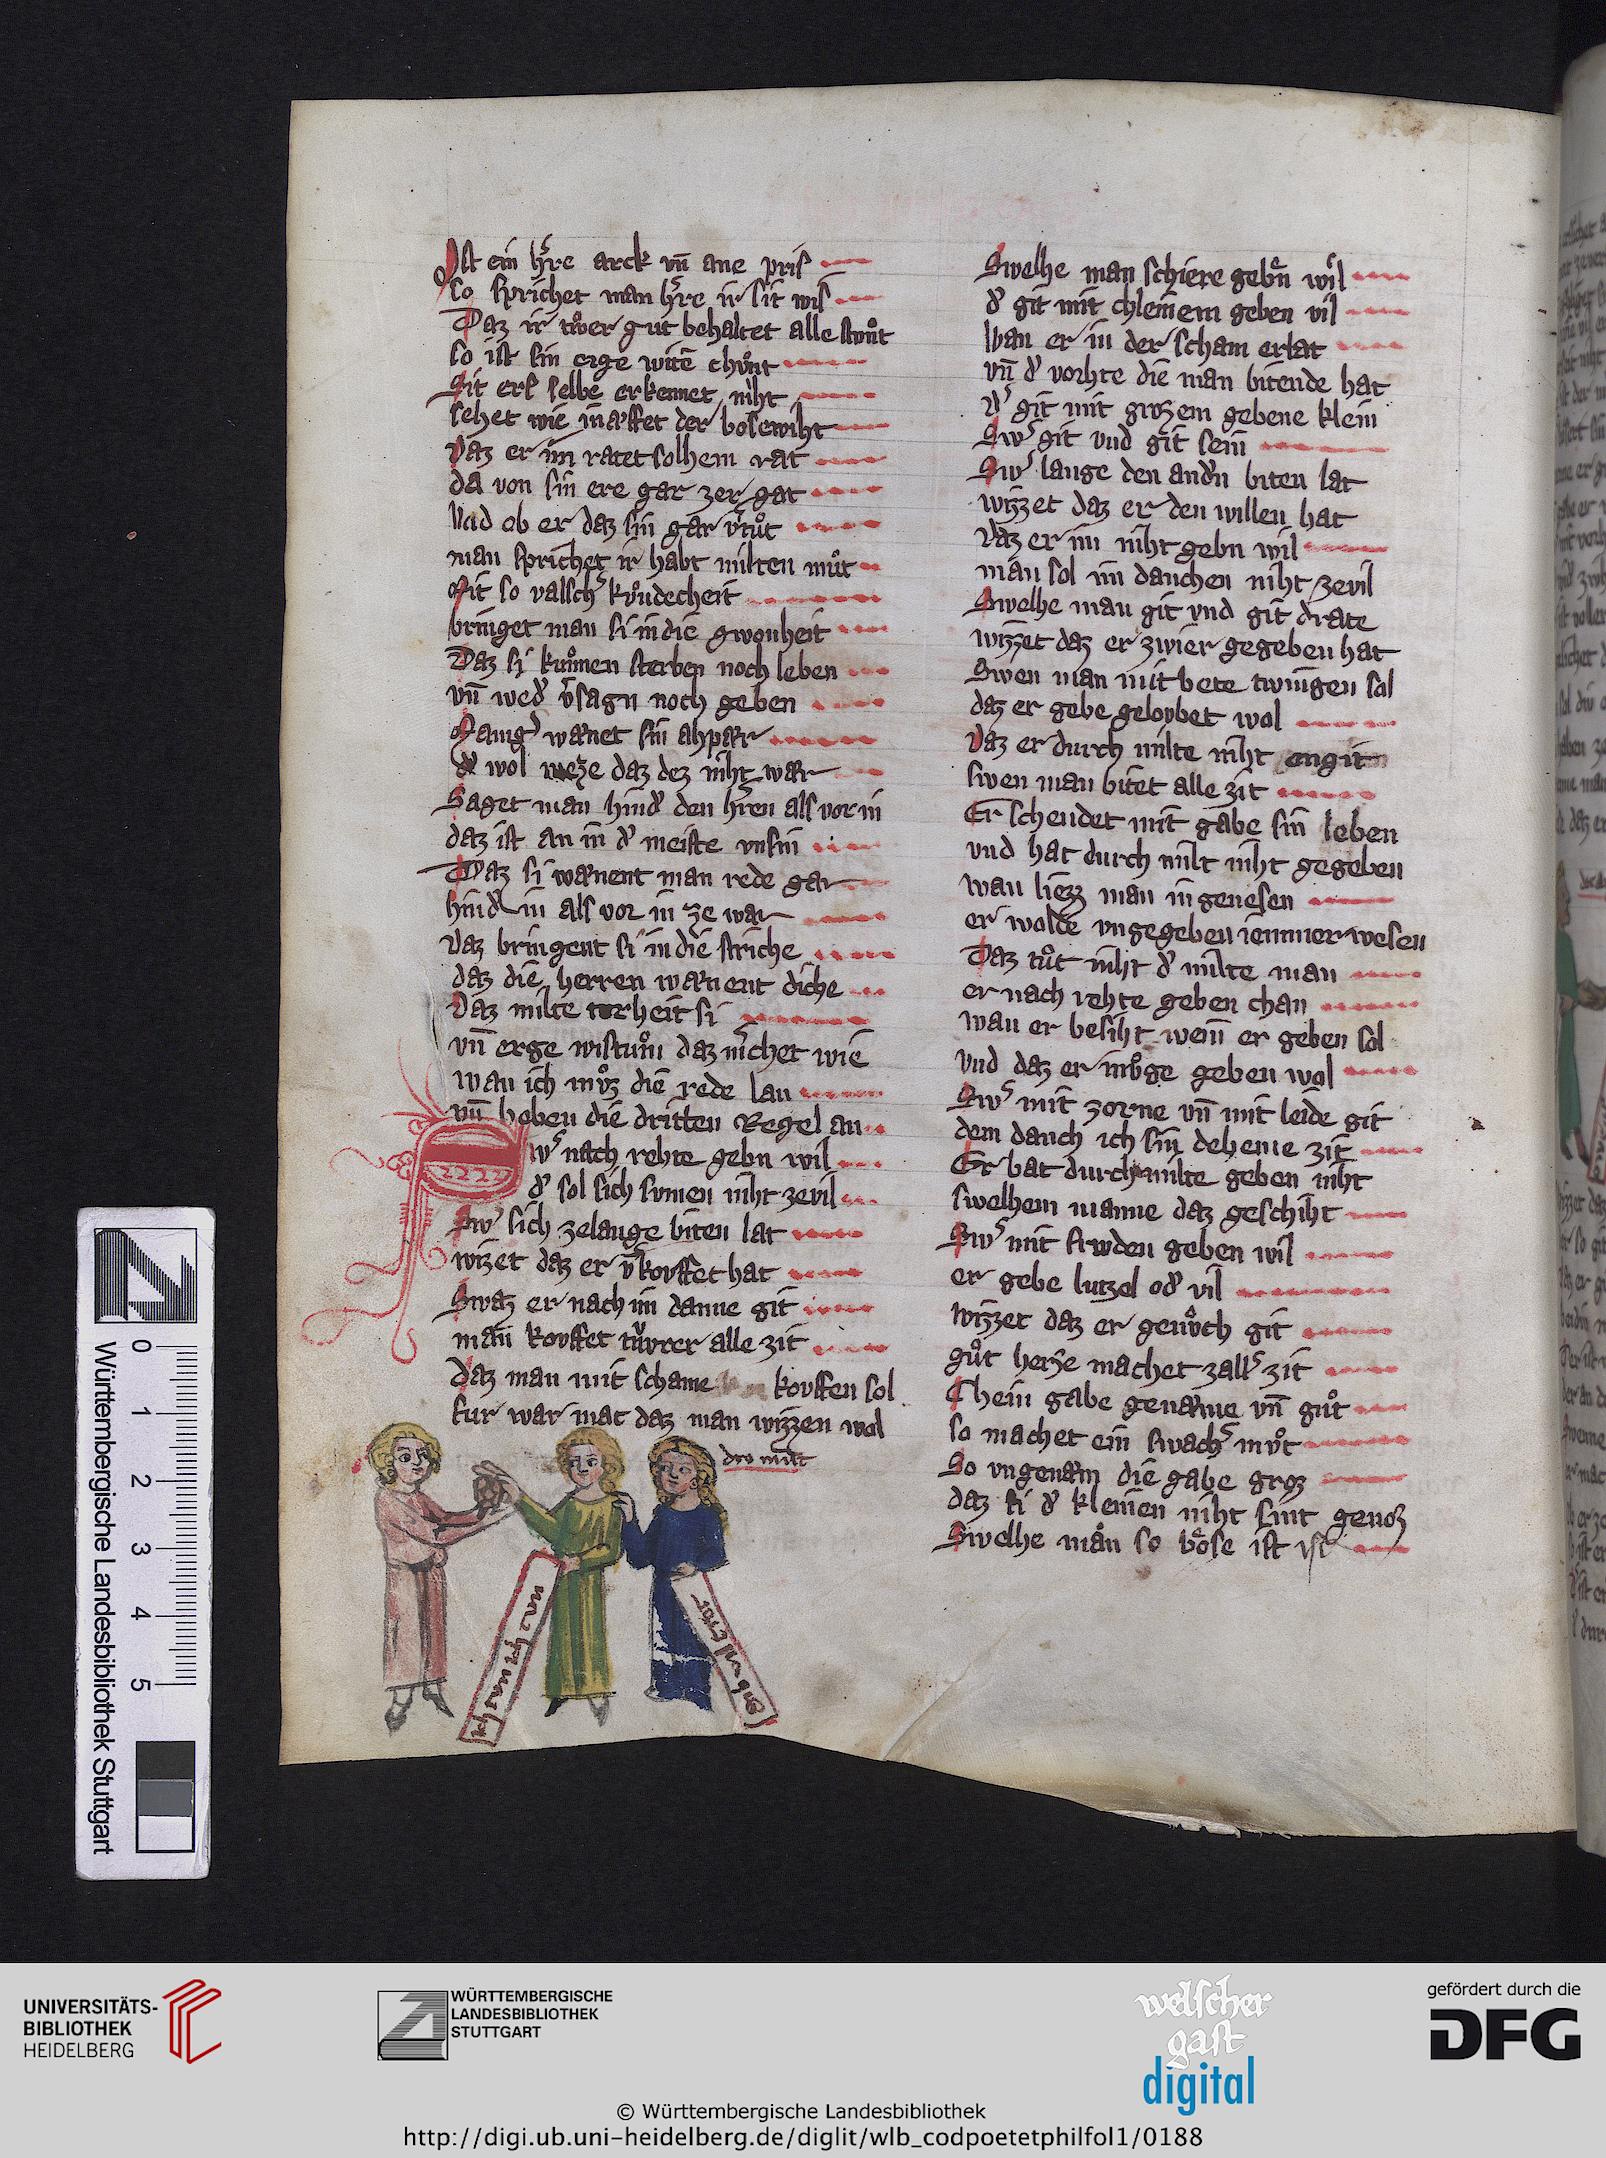 Ist ein hʼre arck vn̄ ane pris
so sprichet man hʼre ir sit wis
Daz ir iwͦer gut behaltet alle stunͦt
so ist sin erge witē chuͦnt
Sit ers selbe erkennet niht
sehet wie in æffet der bosewiht
Daz er im ratet solhem rat
da von sin ere gar zer gat
Vnd ob er daz sin gar vʼtuͦt
man sprichet ir habt milten muͦt
Mit so valschʼ kuͦndecheit
bringet man si in die gwonheit
Daz si kunͦnen sterben noch leben
vn̄ wedʼ vʼsagn noch geben
Manigʼ wænet sin ahpær
dʼ wol weze daz dez niht wær
Saget man hindʼ den hʼren als vor in
daz ist an in dʼ meiste vnsin
Daz si wænent man rede gar
hindʼ in als vor in ze war
Daz bringent si in die striche
daz die herren wænent diche
Daz milte torheit si
vn̄ erge wistuͦm daz mʼchet wie
wan ich muͦz die rede lan
vn̄ heben die dritten Regel an
Swʼ nach rehte gebn wil
dʼ sol sich sumen niht ze vil
Swʼ sich ze lange biten lat
wizet daz er vʼkouffet hat
Swaz er nach im danne git
man kouffet tiwͦrer alle zit
Daz man mit schame kouffen sol
fur war mac daz man wizzen wol
diu milt
Swelhe man schiere gebn̄ wil
dʼ git mit chleinem geben vil
Wan er in der scham erlat
vn̄ dʼ vorhte die man bitende hat
Dʼ git mit grozem gebene klein
Swʼ git vnd git sein
Swʼ lange den andʼn biten lat
wizzet daz er den willen hat
Daz er im niht gebn wil
man sol im danchen niht ze vil
Swelhe man git vnd git drate
wizzet daz er zwier gegeben hat
Swen man mit bete twingen sol
daz er gebe geloubet wol
Daz er durch milte niht engit
swen man bitet alle zit
Er schendet mit gabe sin leben
vnd hat durch milt niht gegeben
wan liezz man in genesen
er wolde vngegeben iemmer wesen
Daz tuͦt niht dʼ milte man
er nach rehte geben chan
wan er besiht wem̄ er geben sol
vnd daz er muͦge geben wol
Swʼ mit zorne vn̄ mit leide git
dem danch ich sin deheine zit
Er hat durch milte geben niht
swelhem manne daz geschiht
Swʼ mit friwden geben wil
er gebe lutzel odʼ vil
Wizzet daz er genuͦch git
guͦt herze machet zallʼ zit
Chein gabe genæme vn̄ guͦt
so machet ein swachʼ muͦt
So vngenæm die gabe groz
daz si dʼ kleinen niht sint genoz
Swelhe man so boͤse ist
0 1 2 3 4 5
Württembergische Landesbibliothek Stuttgart
UNIVERSITÄTS-
BIBLIOTHEK
HEIDELBERG
WÜRTTEMBERGISCHE
LANDESBIBLIOTHEK
STUTTGART
welscher
gast
digital
gefördert durch die
DFG
© Württembergische Landesbibliothek
http://digi.ub.uni-heidelberg.de/diglit/wlb_codpoetetphilfol1/0188